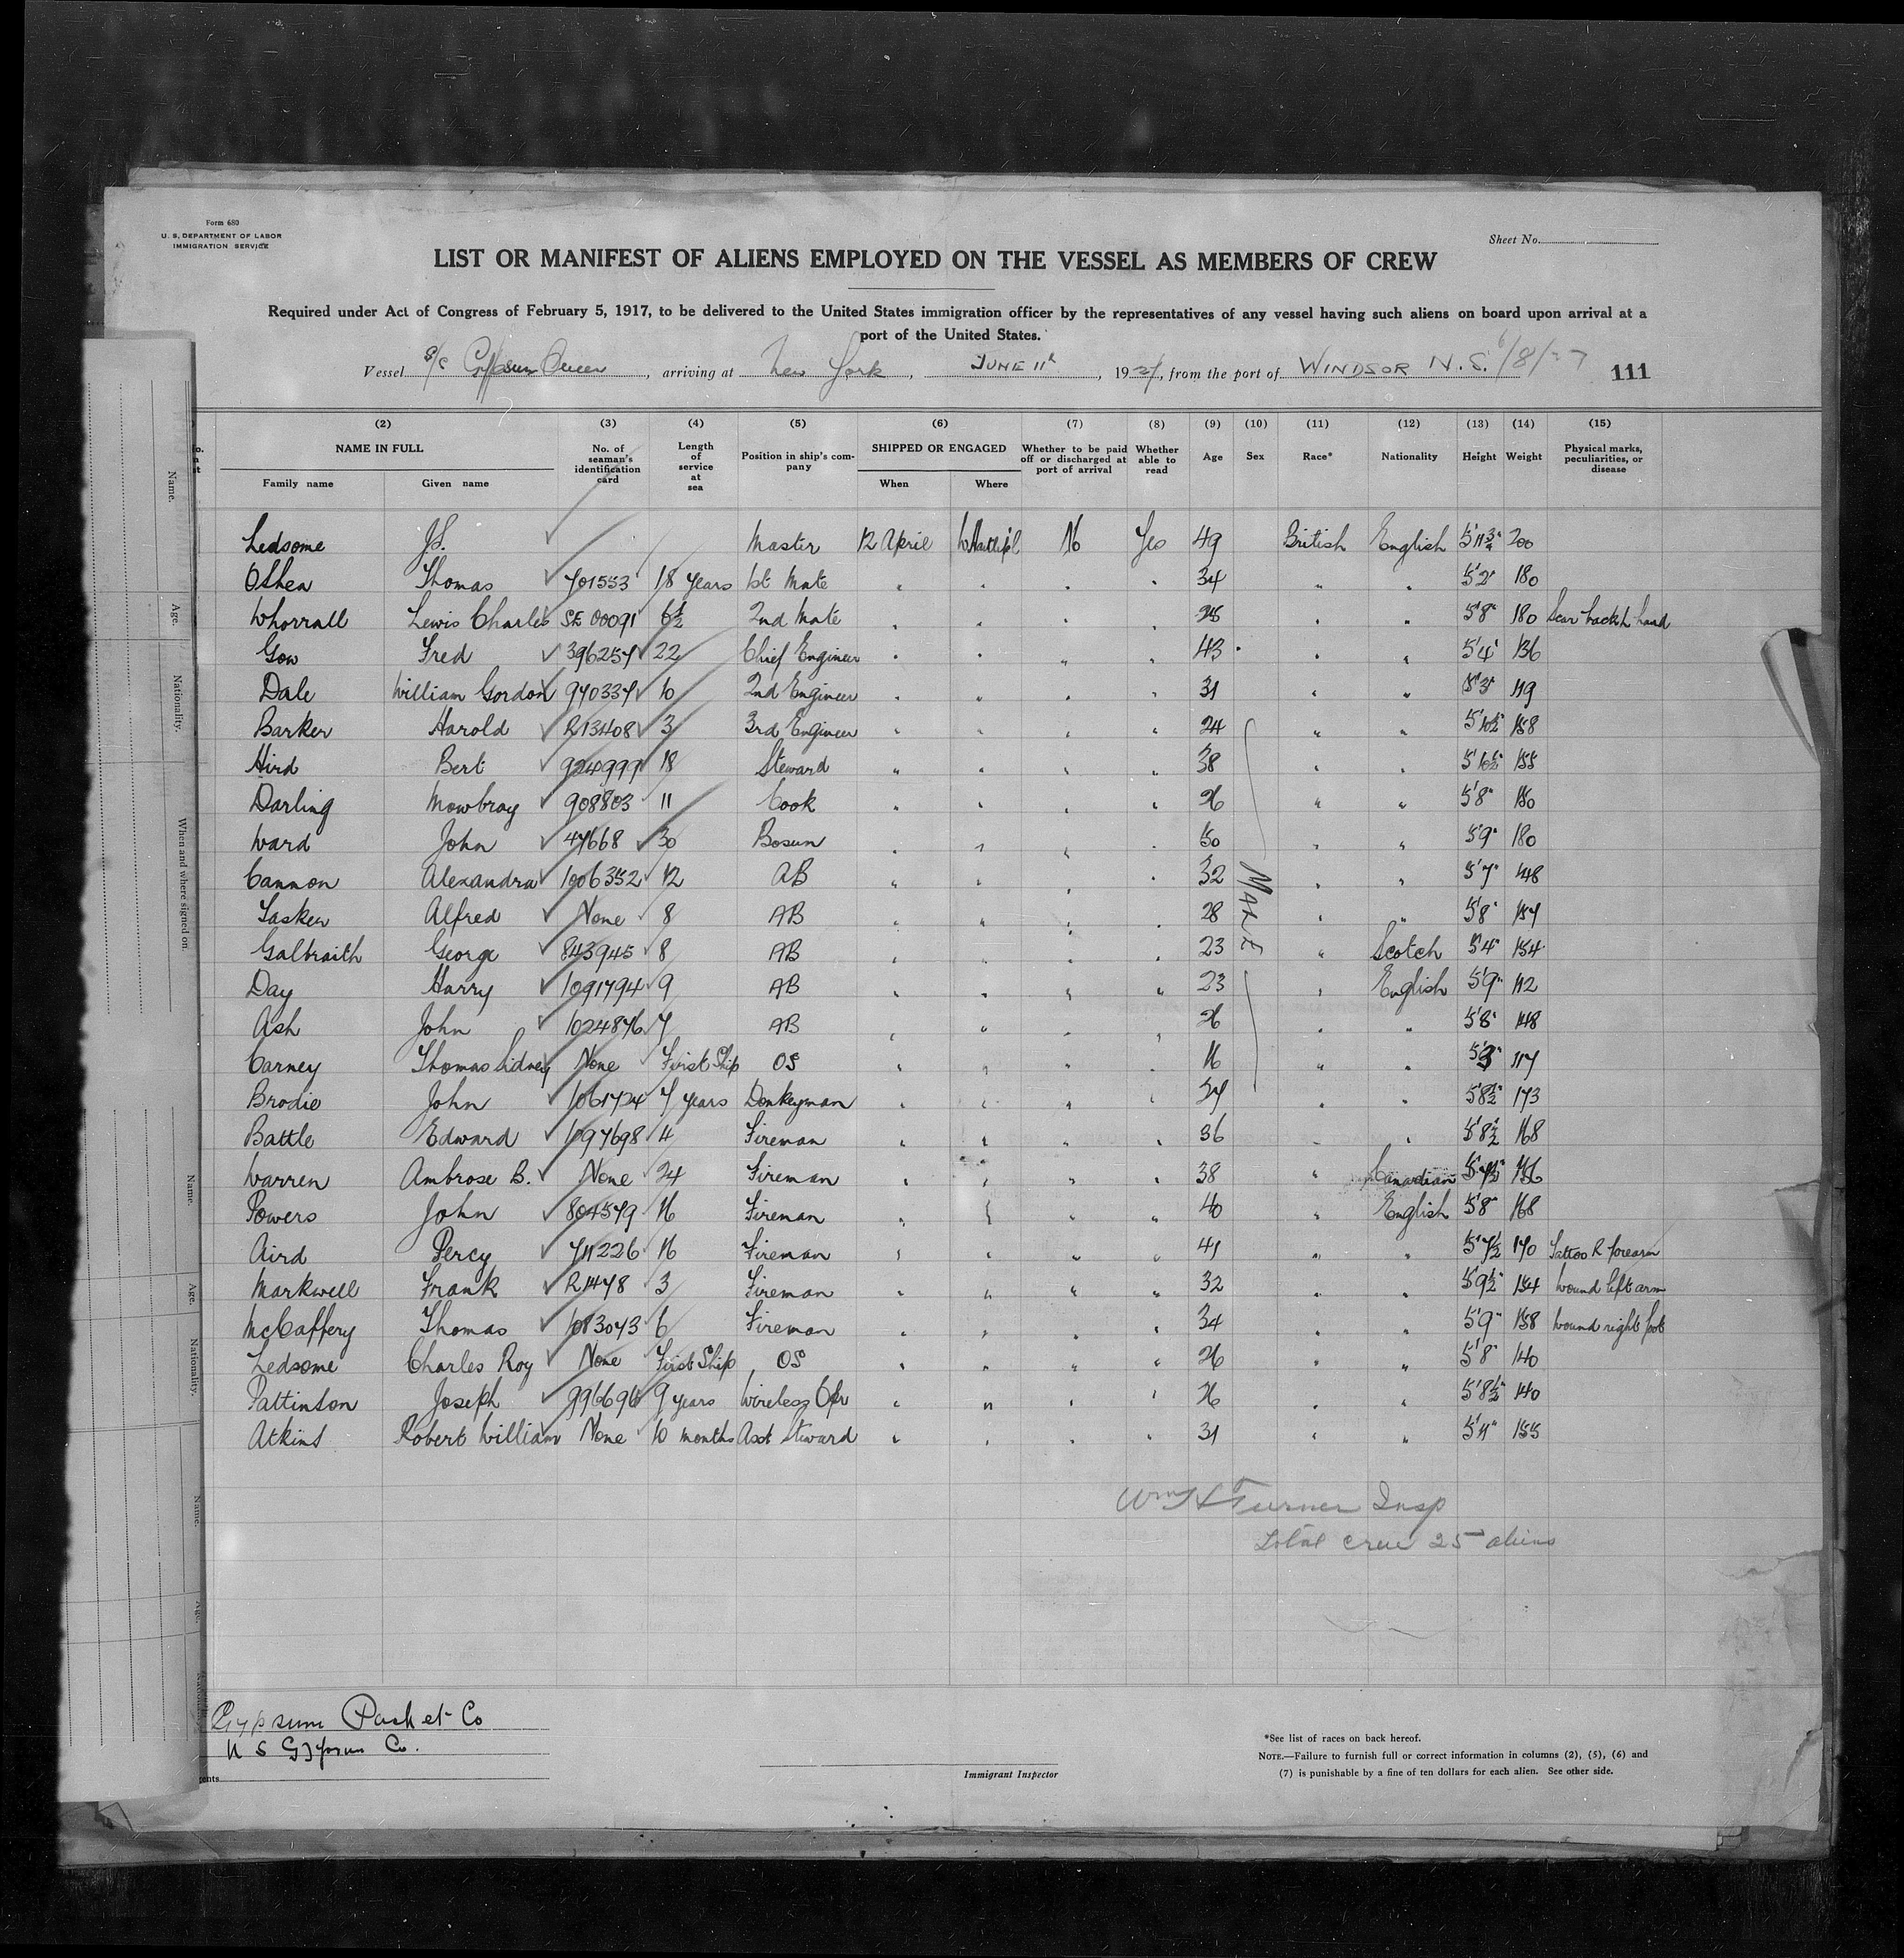 Form 680
U. S. DEPARTMENT OF LABOR
IMMIGRATION SERVICE
Sheet No.
LIST OR MANIFEST OF ALIENS EMPLOYED ON THE VESSEL AS MEMBERS OF CREW
Required under Act of Congress of February 5, 1917, to be delivered to the United States immigration officer by the representatives of any vessel having such aliens on board upon arrival at a
port of the United States.
Vessel S/S Gypsum Queen, arriving at New York, JUNE 11th, 1927, from the port of WINDSOR N.S. 6/8/27 111
(2) (3) (4) (5) (6) (7) (8) (9) (10) (11) (12) (13) (14) (15)
NAME IN FULL No. of seaman's identification card Length of service at sea Position in ship's company SHIPPED OR ENGAGED Whether to be paid off or discharged at port of arrival Whether able to read Age Sex Race* Nationality Height Weight Physical marks, peculiarities, or disease
Family name Given name When Where
Ledsome J.S. Master 12 April No Yes 49 British English 5'11¾" 200
OShea Thomas 701553 18 years 1st Mate " " " " 34 " " 5'2" 180
Whorrall Lewis Charles SE 00091 6½ 2nd Mate " " " " 25 " " 5'8" 180 Scar back L hand
Gow Fred 396257 22 Chief Engineer " " " " 43 " " 5'4" 136
Dale William Gordon 970337 10 2nd Engineer " " " " 31 " " 5'3" 119
Barker Harold R13408 3 3rd Engineer " " " " 24 " " 5'10½" 158
Hird Bert 924999 18 Steward " " " " 38 " " 5'10½" 155
Darling Mowbray 908803 11 Cook " " " " 26 " " 5'8" 150
Ward John 47668 30 Bosun " " " " 50 " " 5'9" 180
Cannon Alexandra 1006352 12 AB " " " " 32 MALE " " 5'7" 148
Laskew Alfred None 8 AB " " " " 28 " " 5'8" 157
Galbraith George 843945 8 AB " " " " 23 " Scotch 5'4" 154
Day Harry 1091794 9 AB " " " " 23 " English 5'9" 112
Ash John 1024876 7 AB " " " " 26 " " 5'8" 148
Carney Thomas Sidney None First Ship OS " " " " 16 " " 5'3" 117
Brodie John 1061724 7 years Donkeyman " " " " 27 " " 5'8½" 173
Battle Edward 1097698 4 Fireman " " " " 36 " " 5'8½" 168
Warren Ambrose B. None 24 Fireman " " " " 38 " Canadian 156
Powers John 804579 16 Fireman " " " " 40 " English 5'8" 168
Aird Percy 711226 16 Fireman " " " " 41 " " 5'7½" 170 Tattoo R forearm
Markwell Frank R1478 3 Fireman " " " " 32 " " 5'9½" 154 Wound left arm
McCaffery Thomas 1013043 6 Fireman " " " " 34 " " 5'9" 158 Wound right foot
Ledsome Charles Roy None First Ship OS " " " " 26 " " 5'8" 140
Pattinson Joseph 996696 9 years Wireless Opr " " " " 26 " " 5'8½" 140
Atkins Robert William None 10 months Asst Steward " " " " 31 " " 5'11" 155
Wm H Turner Insp
Total crew 25 aliens
Gypsum Packet Co
U S Gypsum Co.
Immigrant Inspector
*See list of races on back hereof.
NOTE.—Failure to furnish full or correct information in columns (2), (5), (6) and
(7) is punishable by a fine of ten dollars for each alien. See other side.
Name.
Age.
Nationality.
When and where signed on.
Name.
Age.
Nationality.
Name.
Age.